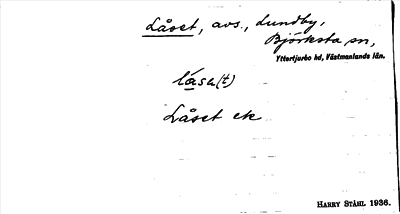 Låset, avs., Lundby,
Björksta sn,
Yttertjurbo hd, Västmanlands län.
låsa(t)
Låset ek
HARRY STÅHL 1936.